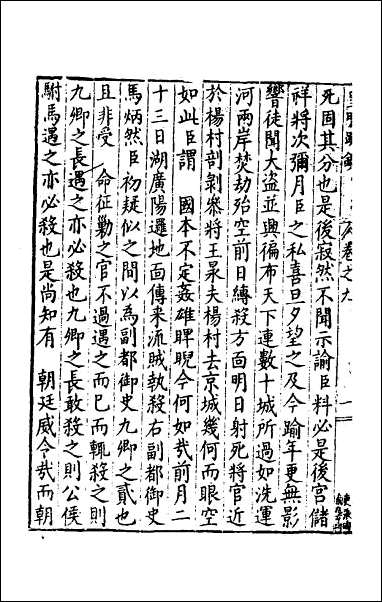 死固其分也是後寂然不聞示諭臣料必是後宮儲
祥將次彌月臣之私喜旦夕望之及今踰年更無影
響徒聞大盜並興徧布天下連數十城所過如洗運
河兩岸焚劫殆空前日縛殺方面明日射死將官近
於楊村剖剝叅將王杲夫楊村去京城幾何而眼空
如此臣謂　國本不定姦雄睥睨今何如㢤前月二
十三日湖廣陽邏地面傳来流賊執殺右副都御史
馬炳然臣初疑似之間以為副都御史九卿之貳也
且非受　命征勦之官不過遇之而已而輒殺之則
九卿之長遇之亦必殺也九卿之長敢殺之則公侯
駙馬遇之亦必殺也是尚知有　朝廷威令㢤而朝
卷之九